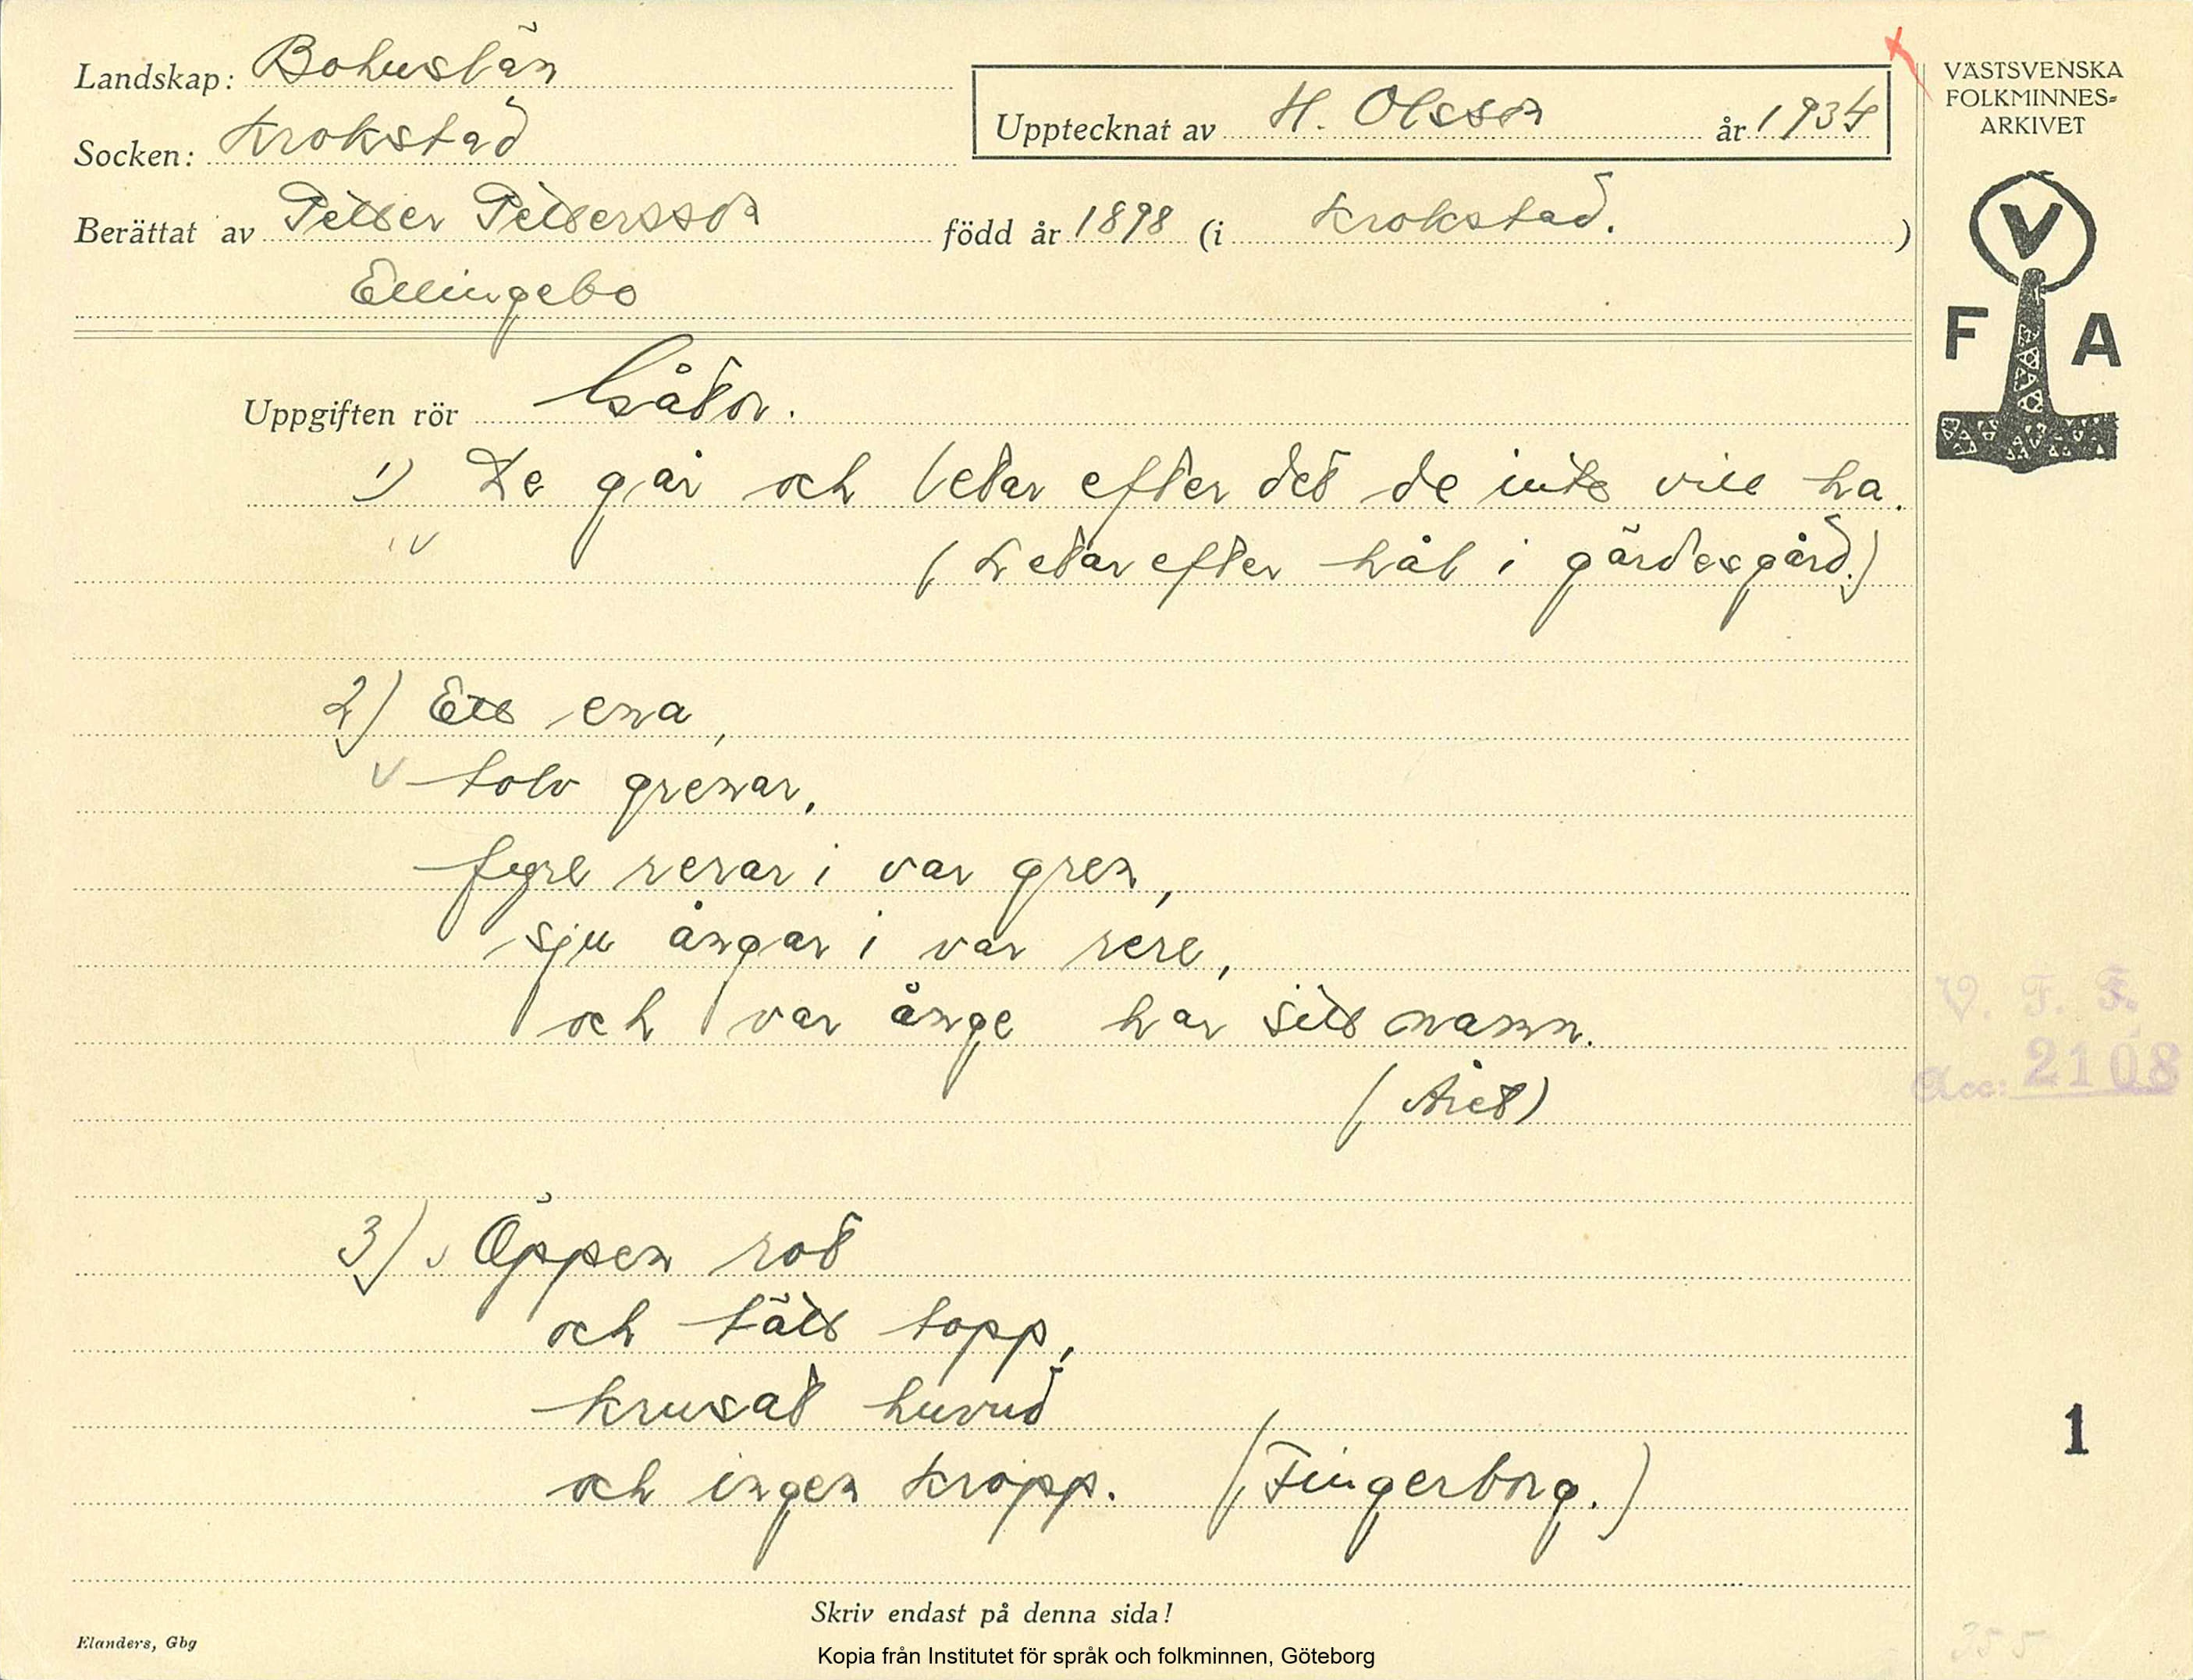 Landskap: Bohuslän
Socken: Krokstad
Upptecknat av H. Olsson år 1934
VÄSTSVENSKA
FOLKMINNES-
ARKIVET
Berättat av Petter Pettersson född år 1898 (i Krokstad.)
Ellingebo
V
F A
Uppgiften rör Gåtor.
1) De går och letar efter det de inte vill ha.
(Letar efter hål i gärdesgård.)
2) Ett ena,
tolv grenar,
fyre rerar i var gren,
sju ångar i var rere,
och var ånge har sitt namn.
(Året)
V. F. F.
Acc: 2108
3) Öppen rot
och tätt topp,
krusat huvud
och ingen kropp. (Fingerborg.)
1
Skriv endast på denna sida!
Elanders, Gbg
Kopia från Institutet för språk och folkminnen, Göteborg
355